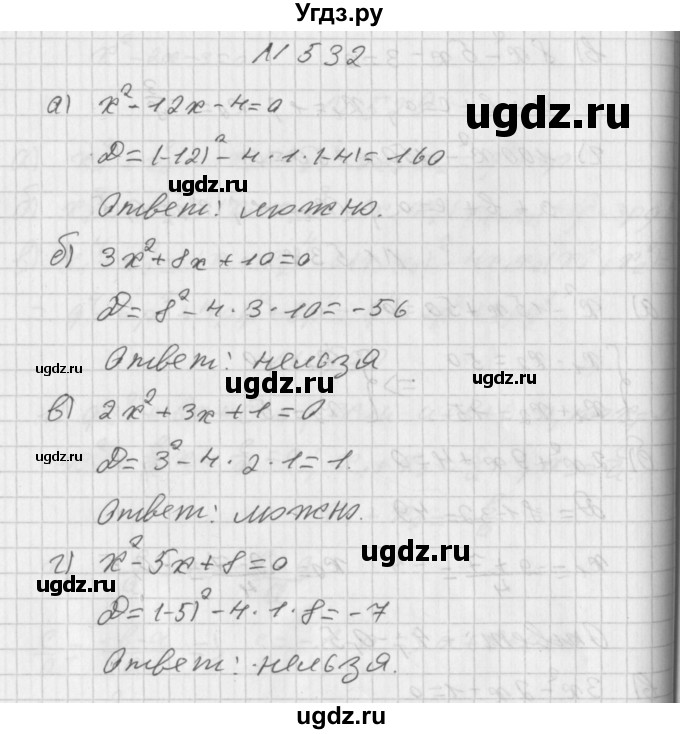 Угдз.ру
№ 532
а) x² - 12x - 4 = 0
D = (-12)² - 4 · 1 · (-4) = 160
ugdz.ru ugdz.ru
Ответ: можно.
б) 3x² + 8x + 10 = 0
D = 8² - 4 · 3 · 10 = -56
Ответ: нельзя
ugdz.ru ugdz.ru ugdz.ru
в) 2x² + 3x + 1 = 0
D = 3² - 4 · 2 · 1 = 1.
ugdz.ru ugdz.ru
Ответ: можно.
ugdz.ru
г) x² - 5x + 8 = 0
D = (-5)² - 4 · 1 · 8 = -7
ugdz.ru ugdz.ru
Ответ: нельзя.
ugdz.ru